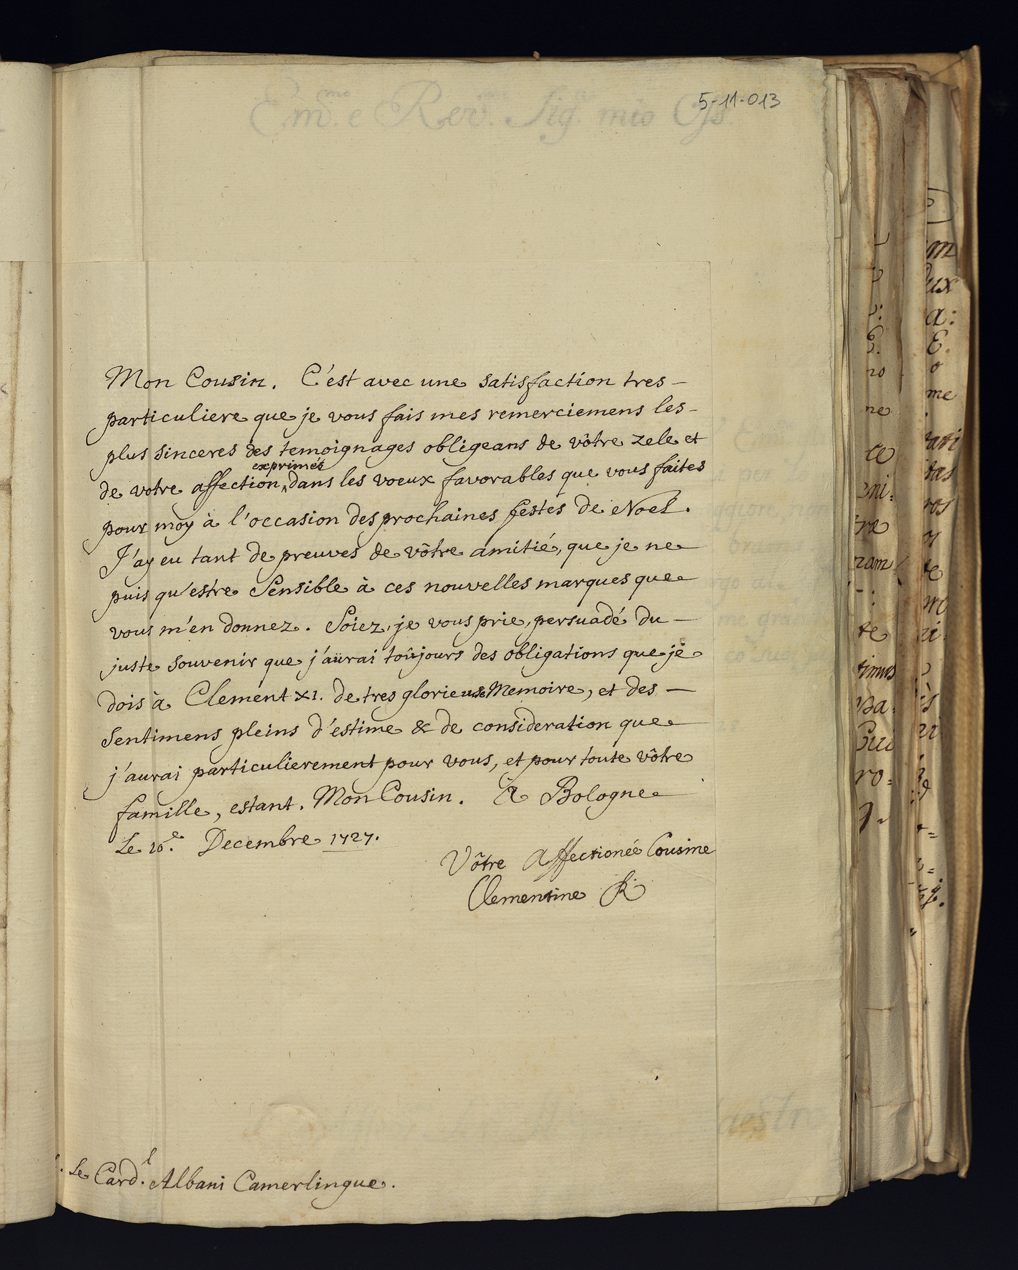 5-11-013
Mon Cousin. C'est avec une satisfaction tres-
particuliere que je vous fais mes remerciemens les-
plus sinceres des temoignages obligeans de vôtre zele et
exprimés
de votre affection, dans les voeux favorables que vous faites
pour moy à l'occasion des prochaines festes de Noel.
J'ay eu tant de preuves de vôtre amitié, que je ne
puis qu'estre Sensible à ces nouvelles marques que
vous m'en donnez. Soiez, je vous prie, persuadé du-
juste souvenir que j'aürai toûjours des obligations que je
dois à Clement XI. de tres glorieuse Memoire, et des-
Sentimens pleins d'estime & de consideration que
j'aurai particulierement pour vous, et pour toute vôtre
famille, estant. Mon Cousin. A Bologne
Le 10.e Decembre 1727.
Vôtre Affectionée Cousine
Clementine R
Le Card.l Albani Camerlingue.